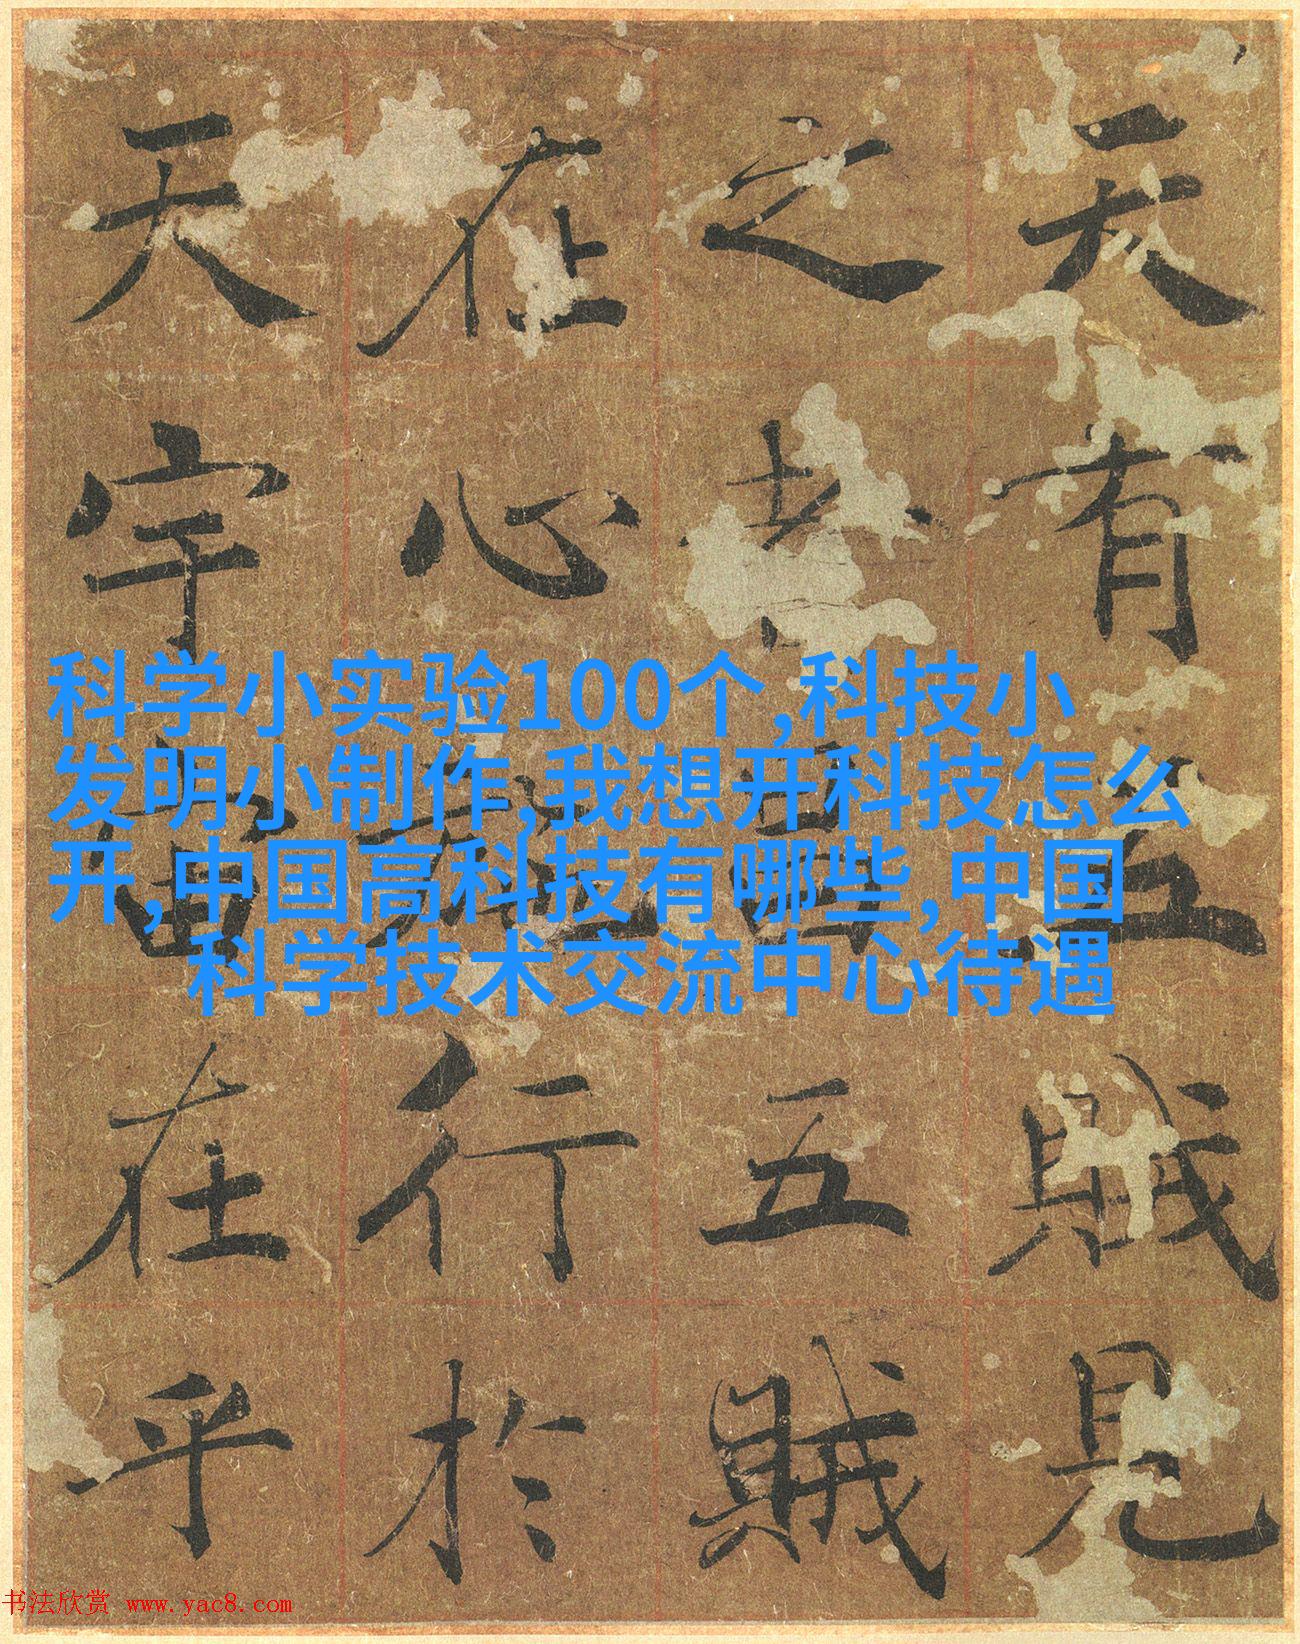 天有五賊見
之者昌五賊
在心施行於
天宇宙在乎
科学小实验100个,科技小
发明小制作,我想开科技怎么
开,中国高科技有哪些,中国
科学技术交流中心待遇
书法欣赏 www.yac8.com